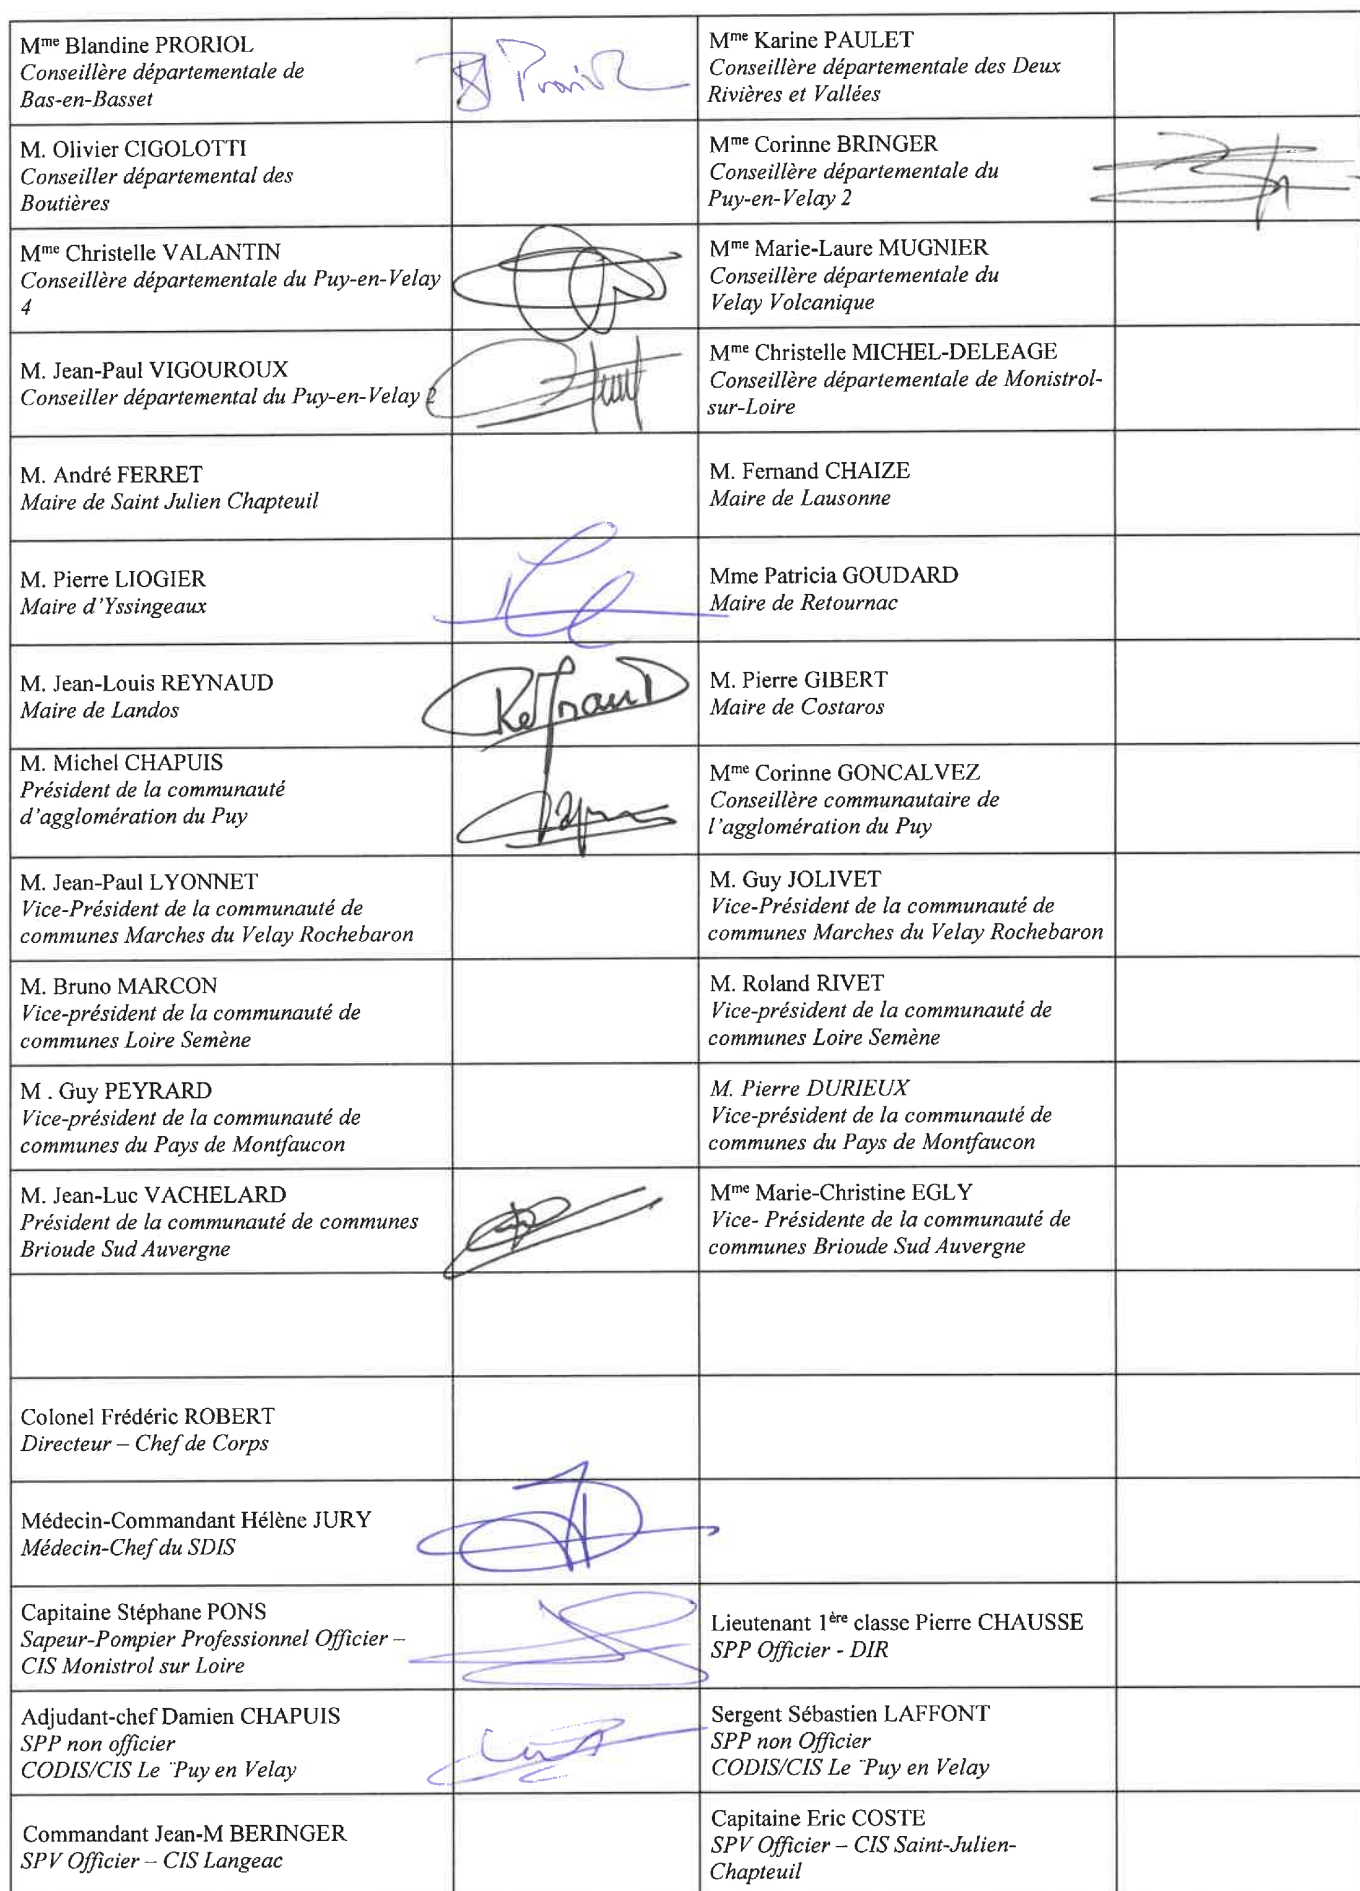 Mme Blandine PRORIOL
Conseillère départementale de
Bas-en-Basset
Mme Karine PAULET
Conseillère départementale des Deux
Rivières et Vallées
M. Olivier CIGOLOTTI
Conseiller départemental des
Boutières
Mme Corinne BRINGER
Conseillère départementale du
Puy-en-Velay 2
Mme Christelle VALANTIN
Conseillère départementale du Puy-en-Velay
4
Mme Marie-Laure MUGNIER
Conseillère départementale du
Velay Volcanique
M. Jean-Paul VIGOUROUX
Conseiller départemental du Puy-en-Velay 2
Mme Christelle MICHEL-DELEAGE
Conseillère départementale de Monistrol-
sur-Loire
M. André FERRET
Maire de Saint Julien Chapteuil
M. Fernand CHAIZE
Maire de Lausonne
M. Pierre LIOGIER
Maire d'Yssingeaux
Mme Patricia GOUDARD
Maire de Retournac
M. Jean-Louis REYNAUD
Maire de Landos
Reynaud
M. Pierre GIBERT
Maire de Costaros
M. Michel CHAPUIS
Président de la communauté
d'agglomération du Puy
Mme Corinne GONCALVEZ
Conseillère communautaire de
l'agglomération du Puy
M. Jean-Paul LYONNET
Vice-Président de la communauté de
communes Marches du Velay Rochebaron
M. Guy JOLIVET
Vice-Président de la communauté de
communes Marches du Velay Rochebaron
M. Bruno MARCON
Vice-président de la communauté de
communes Loire Semène
M. Roland RIVET
Vice-président de la communauté de
communes Loire Semène
M . Guy PEYRARD
Vice-président de la communauté de
communes du Pays de Montfaucon
M. Pierre DURIEUX
Vice-président de la communauté de
communes du Pays de Montfaucon
M. Jean-Luc VACHELARD
Président de la communauté de communes
Brioude Sud Auvergne
Mme Marie-Christine EGLY
Vice- Présidente de la communauté de
communes Brioude Sud Auvergne
Colonel Frédéric ROBERT
Directeur – Chef de Corps
Médecin-Commandant Hélène JURY
Médecin-Chef du SDIS
Capitaine Stéphane PONS
Sapeur-Pompier Professionnel Officier –
CIS Monistrol sur Loire
Lieutenant 1ère classe Pierre CHAUSSE
SPP Officier - DIR
Adjudant-chef Damien CHAPUIS
SPP non officier
CODIS/CIS Le ¨Puy en Velay
Sergent Sébastien LAFFONT
SPP non Officier
CODIS/CIS Le ¨Puy en Velay
Commandant Jean-M BERINGER
SPV Officier – CIS Langeac
Capitaine Eric COSTE
SPV Officier – CIS Saint-Julien-
Chapteuil